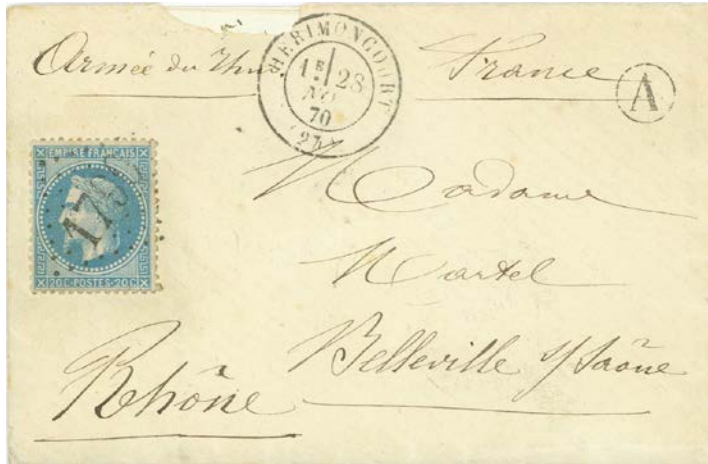 Armée du Rhin
France
HERIMONCOURT
1E 28
NO
70
(24)
A
EMPIRE FRANÇAIS
20C·POSTES·20C
Madame
Martel
Belleville s/Saône
Rhône